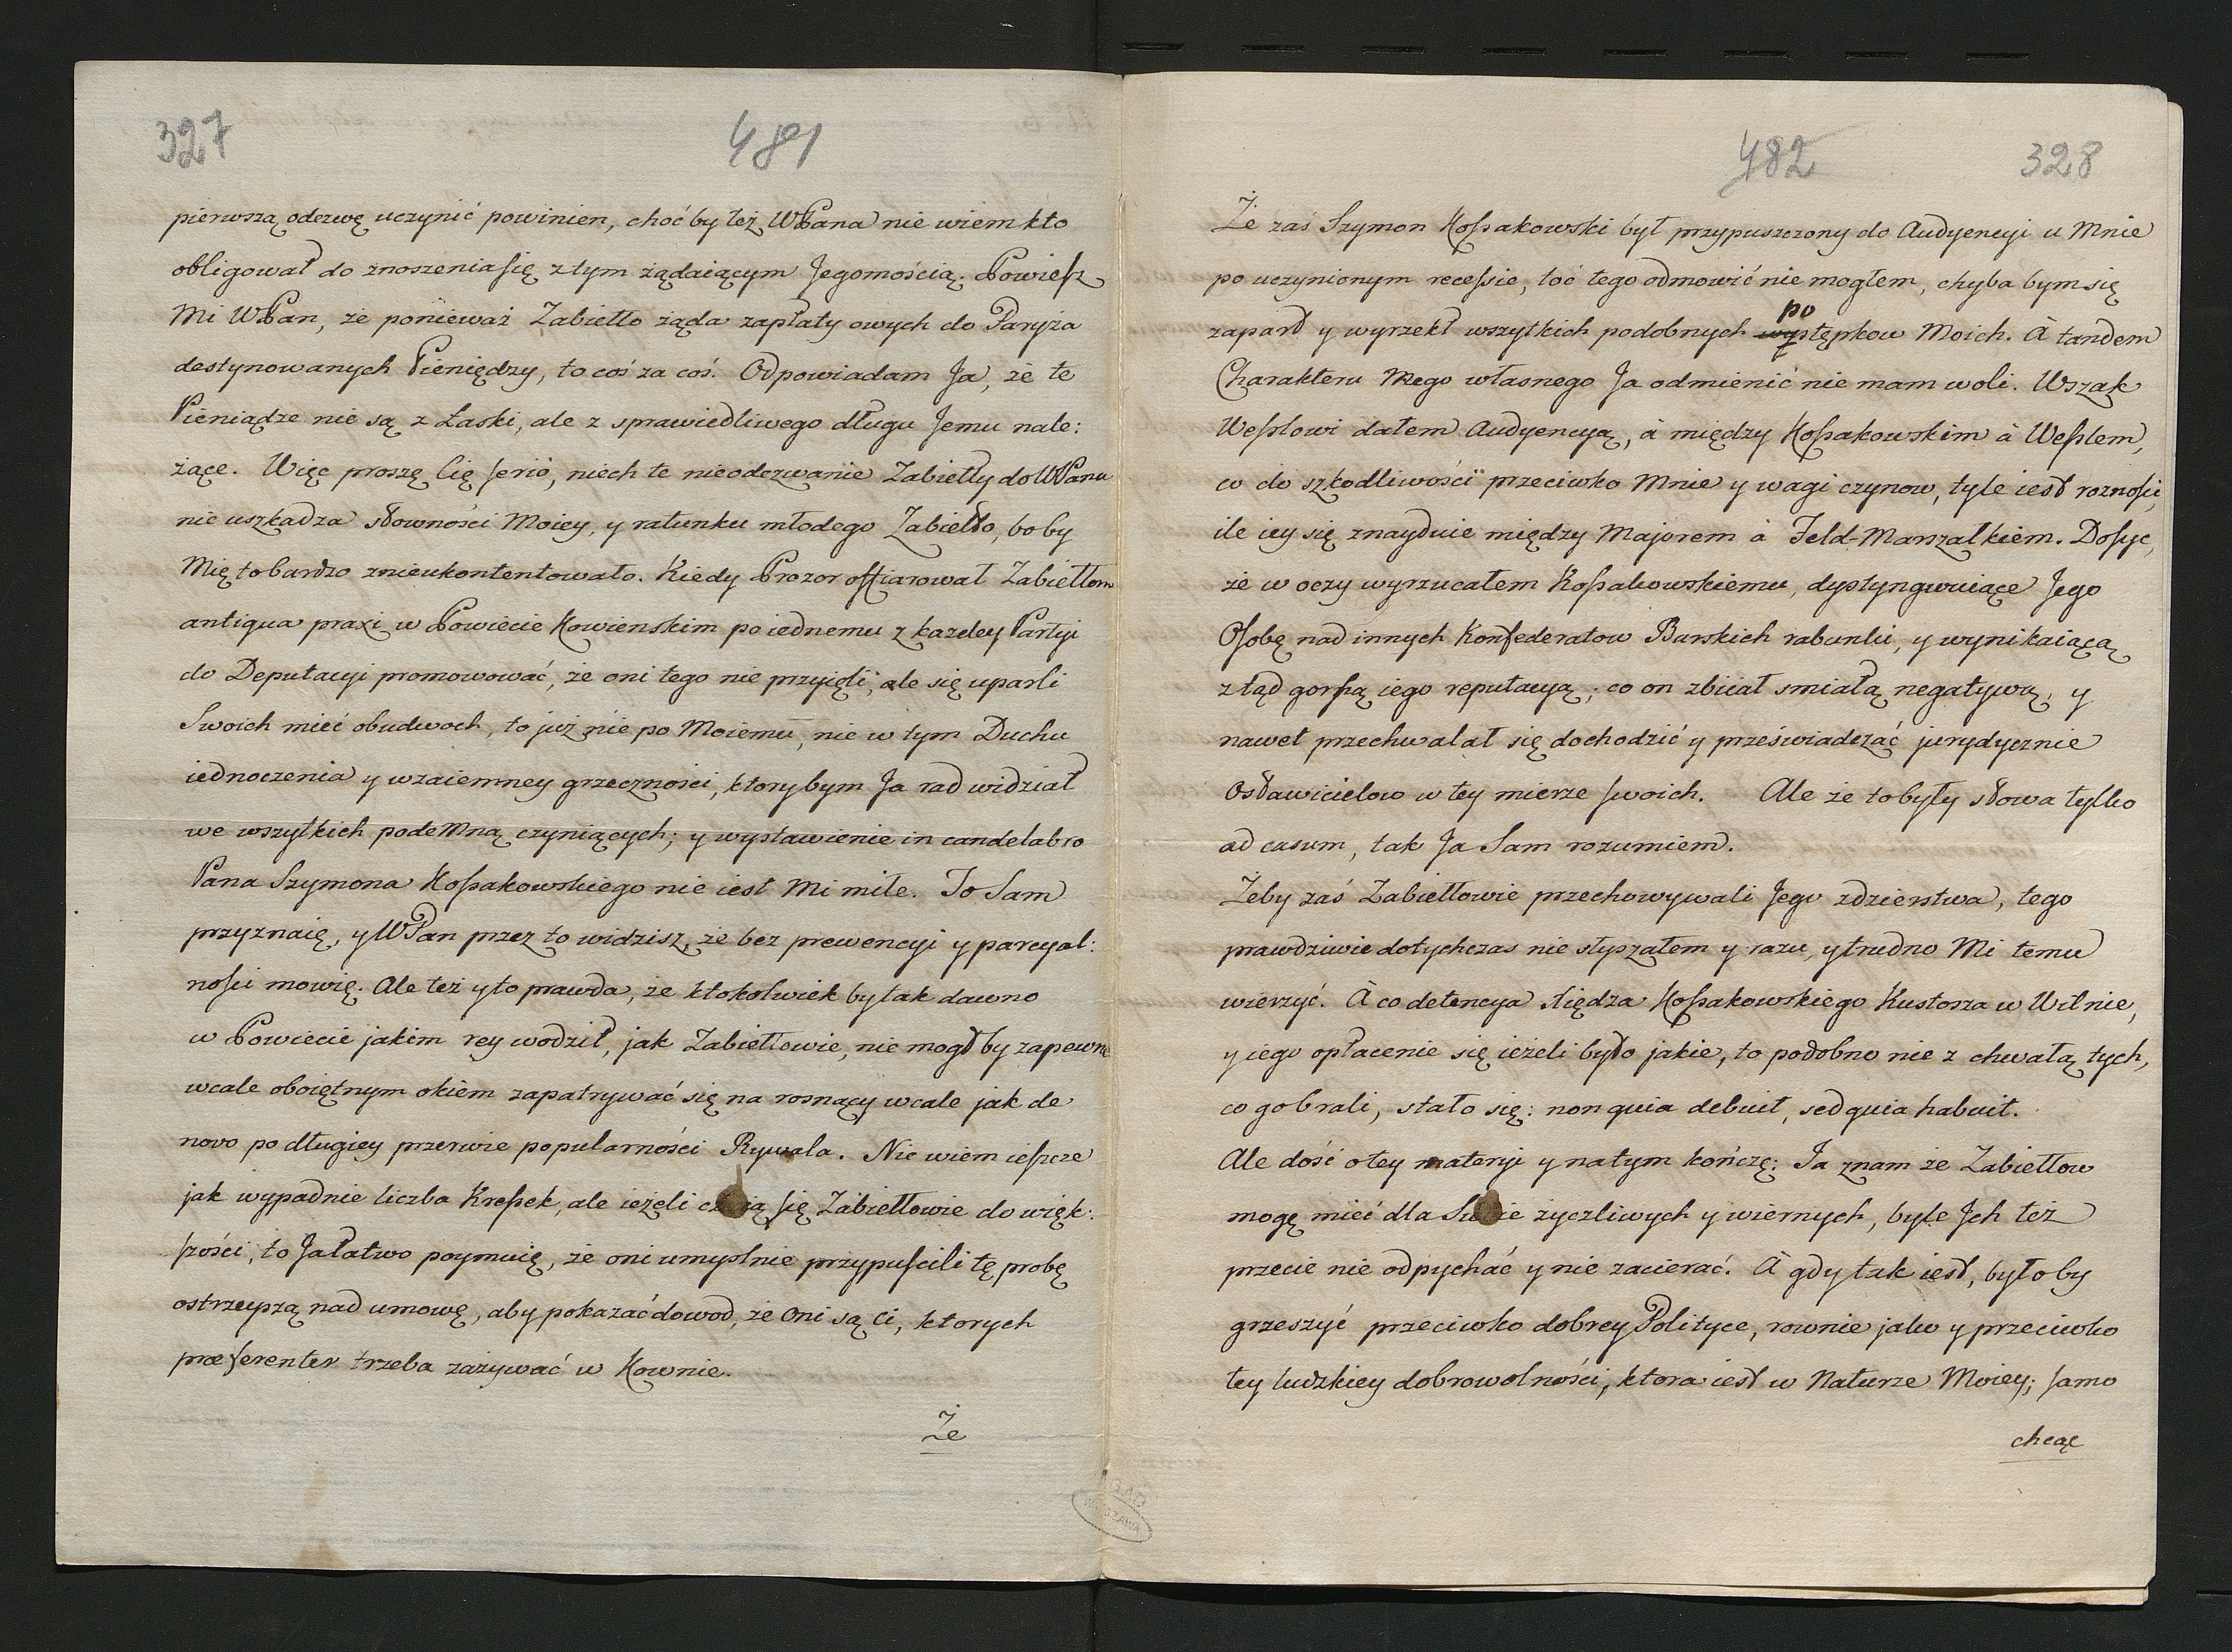 327
481
pierwszą odezwę uczynić powinien, choć by też WPana nie wiem kto
obligował do znoszenia się z tym żądaiącym Jegomością. Powiesz
Mi WPan, że ponieważ Zabiełło żąda zapłaty owych do Paryża
destynowanych Pieniędzy, to coś za coś. Odpowiadam Ja, że te
Pieniądze nie są z Łaski, ale z sprawiedliwego długu Jemu nale:
żące. Więc proszę Cię serió, niech te nieodezwanie Zabiełły do WPana
nie uszkadza słowności Moiey, y ratunku młodego Zabiełło, bo by
Mię to bardzo znieukontentowało. Kiedy Prozor offiarował Zabiełłom
antiqua praxi w Powiecie Kowienskim po iednemu z kazdey Partyi
do Deputacyi promowować, że oni tego nie przyięli, ale się uparli
Swoich mieć obudwoch, to już nie po Moiemu, nie w tym Duchu
iednoczenia y wzaiemney grzeczności, ktory bym Ja rad widział
we wszytkich podemną czyniących; y wystawienie in candelabro
Pana Szymona Kossakowskiego nie iest Mi miłe. To Sam
przyznaię, y WPan przez to widzisz, że bez prewencyi y parcyal:
ności mowię. Ale też y to prawda, że ktokolwiek by tak dawno
w Powiecie jakim rey wodził, jak Zabiełłowie, nie mogł by zapewne
wcale oboiętnym okiem zapatrywać się na rosnący wcale jak de
novo po długiey przerwie popularności Rywala. Nie wiem ieszcze
jak wypadnie liczba Kresek, ale ieżeli się Zabiełłowie do więk:
szości, to Ja łatwo poymuię, że oni umyslnie przypuscili tę probę
ostrzeyszą nad umowę, aby pokazać dowod, że Oni są ci, ktorych
præferenter trzeba zażywać w Kownie.
Że
482
328
Że zaś Szymon Kossakowski był przypuszczony do Audyencyi u Mnie
po uczynionym recessie, toć tego odmowić nie mogłem, chyba bym się
po
zaparł y wyrzekł wszytkich podobnych występkow Moich. À tandem
Charakteru Mego własnego Ja odmienić nie mam woli. Wszak
Wesslowi dałem Audyencyą, à między Kossakowskim à Wesslem,
co do szkodliwości przeciwko Mnie y wagi czynow, tyle iest roznosci,
ile iey się znayduie między Majorem à Feld-Marszałkiem. Dosyc,
że w oczy wyrzucałem Kossakowskiemu, dystyngwuiące Jego
Osobę nad innych Konfederatow Barskich rabunki, y wynikaiącą
ztąd gorszą iego reputacyą; co on zbiiał smiałą negatywą, y
nawet przechwalał się dochodzić y przeświadczać jurydycznie
osławicielow w tey mierze swoich. Ale że to były słowa tylko
ad casum, tak Ja Sam rozumiem.
Żeby zaś Zabiełłowie przechowywali Jego zdzierstwa, tego
prawdziwie dotychczas nie słyszałem y razu, y trudno Mi temu
wierzyć. À co detencya Xiędza Kossakowskiego Kustosza w Wilnie,
y iego opłacenie się ieżeli było jakie, to podobno nie z chwałą tych,
co go brali, stało się: non quia debuit, sed quia habuit.
Ale dość o tey materyi y na tym kończę: Ja znam że Zabiełłow
mogę mieć dla Siebie życzliwych y wiernych, byle Jch też
przecie nie odpychać y nie zacierać. À gdy tak iest, było by
grzeszyć przeciwko dobrey Polityce, rownie jako y przeciwko
tey ludzkiey dobrowolności, ktora iest w Naturze Moiey; samo
chcąc
WARSZAWA